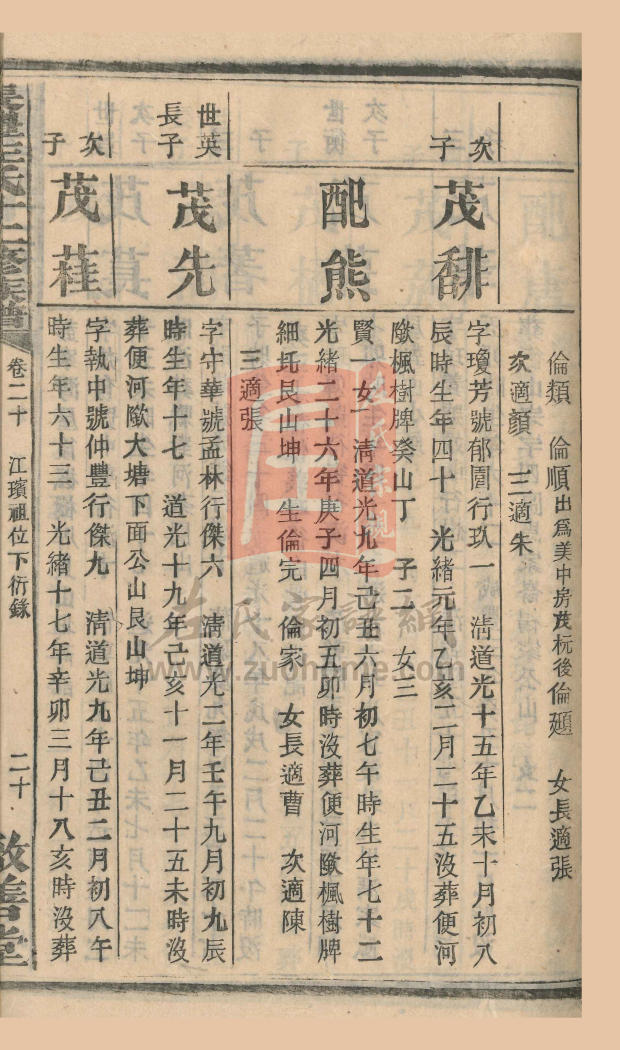 倫類　倫順出為美中房茂杬後倫題　女長適張
次適顏　三適朱
次子
茂馡
字瓊芳號郁聞行玖一　清道光十五年乙未十月初八
辰時生年四十　光緒元年乙亥二月二十五沒葬便河
歟楓樹牌癸山丁　子二　女三
配熊
賢一女　清道光九年己丑六月初七午時生年七十二
光緒二十六年庚子四月初五卯時沒葬便河歟楓樹牌
細圫艮山坤　生倫完　倫家　女長適曹　次適陳
三適張
世英長子
茂先
字守華號孟林行傑六　清道光二年壬午九月初九辰
時生年十七　道光十九年己亥十一月二十五未時沒
葬便河歟大塘下面公山艮山坤
次子
茂蕤
字執中號仲豐行傑九　清道光九年己丑二月初八午
時生年六十三　光緒十七年辛卯三月十八亥時沒葬
左氏十二修族譜
卷二十　江璸祖位下衍錄
二十
敬善堂
左氏家譜網
www.zuohome.com